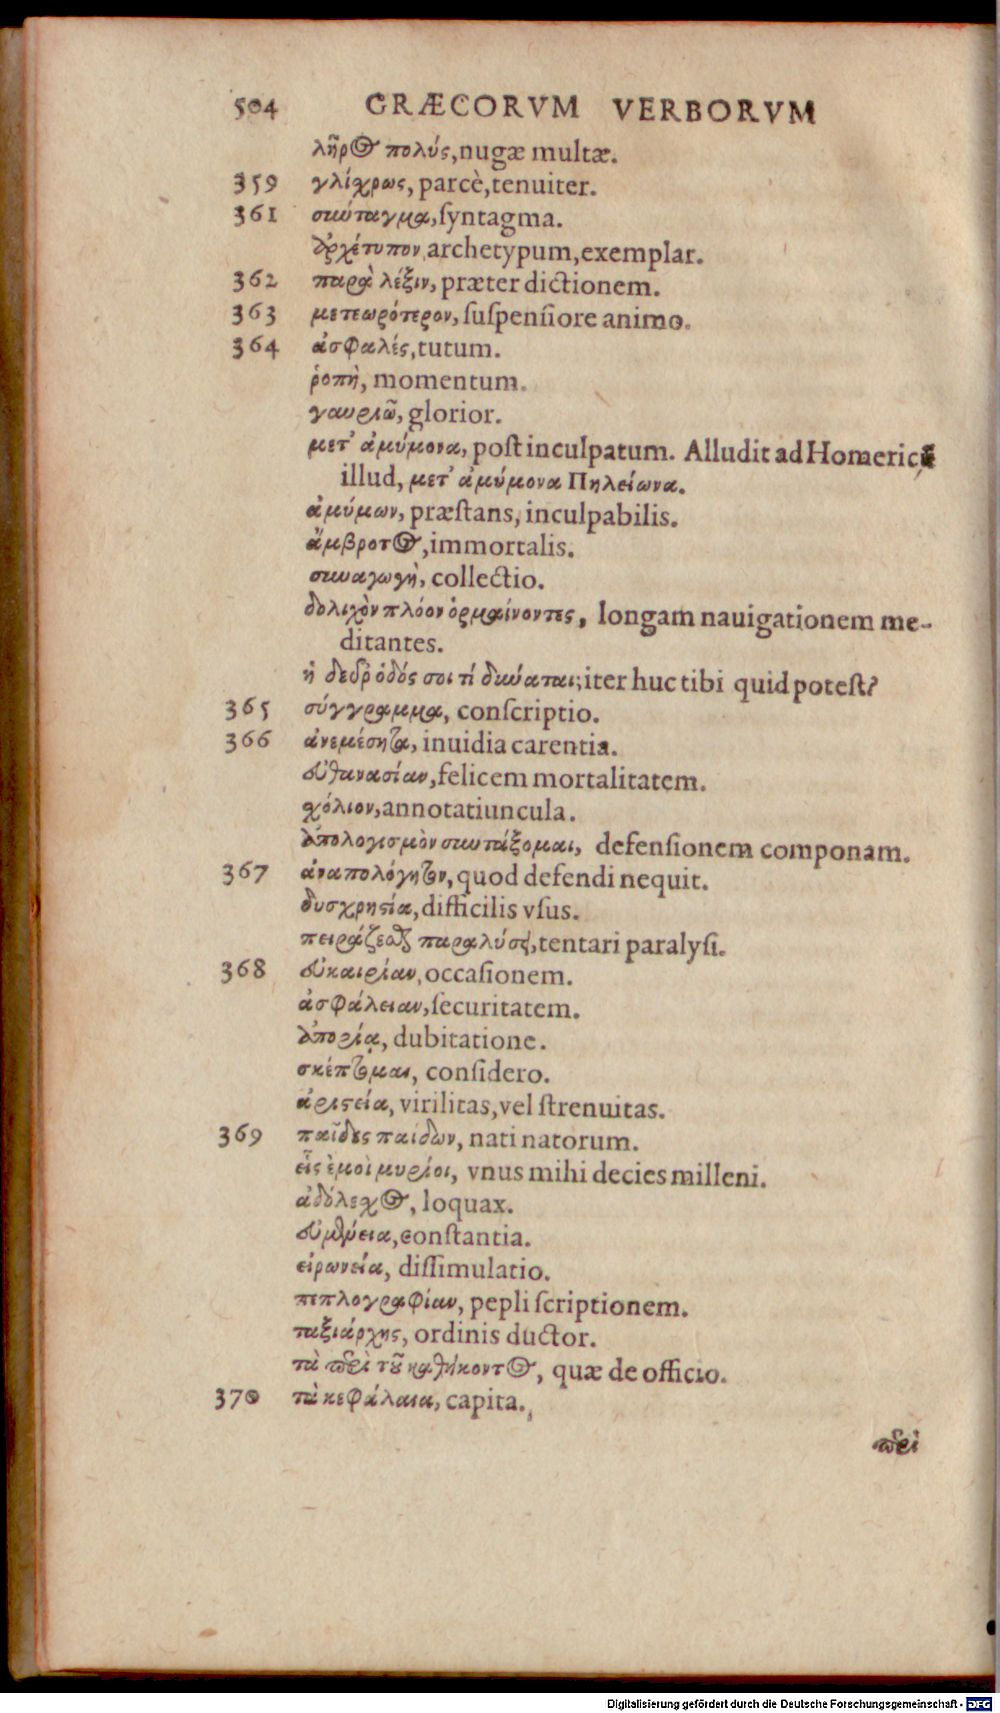 504 GRÆCORVM VERBORVM
λῆρος πολύς, nugæ multæ.
359 γλίχρως, parcè, tenuiter.
361 σύνταγμα, ſyntagma.
ἀρχέτυπον, archetypum, exemplar.
362 παρὰ λέξιν, præter dictionem.
363 μετεωρότερον, ſuſpenſiore animo.
364 ἀσφαλές, tutum.
ῥοπὴ, momentum.
γαυριῶ, glorior.
μετ' ἀμύμονα, poſt inculpatum. Alludit ad Homericũ
illud, μετ' ἀμύμονα Πηλείωνα.
ἀμύμων, præſtans, inculpabilis.
ἄμβροτος, immortalis.
συναγωγὴ, collectio.
δολιχὸν πλόον ὁρμαίνοντες, longam nauigationem me-
ditantes.
ἡ δεῦρ' ὁδός σοι τί δύναται; iter huc tibi quid poteſt?
365 σύγγραμμα, conſcriptio.
366 ἀνεμέσητα, inuidia carentia.
εὐθανασίαν, felicem mortalitatem.
χόλιον, annotatiuncula.
ἀπολογισμὸν συντάξομαι, defenſionem componam.
367 ἀναπολόγητον, quod defendi nequit.
δυσχρησία, difficilis vſus.
πειράζεσθαι παραλύσει, tentari paralyſi.
368 εὐκαιρίαν, occaſionem.
ἀσφάλειαν, ſecuritatem.
ἀπορία, dubitatione.
σκέπτομαι, conſidero.
ἀριστεία, virilitas, vel ſtrenuitas.
369 παῖδες παίδων, nati natorum.
εἷς ἐμοὶ μυρίοι, vnus mihi decies milleni.
ἀδόλεχος, loquax.
εὐμένεια, conſtantia.
εἰρωνεία, diſſimulatio.
πεπλογραφίαν, pepli ſcriptionem.
ταξιάρχης, ordinis ductor.
τὰ περὶ τοῦ καθήκοντος, quæ de officio.
370 τὰ κεφάλαια, capita.
περὶ
Digitalisierung gefördert durch die Deutsche Forschungsgemeinschaft - DFG